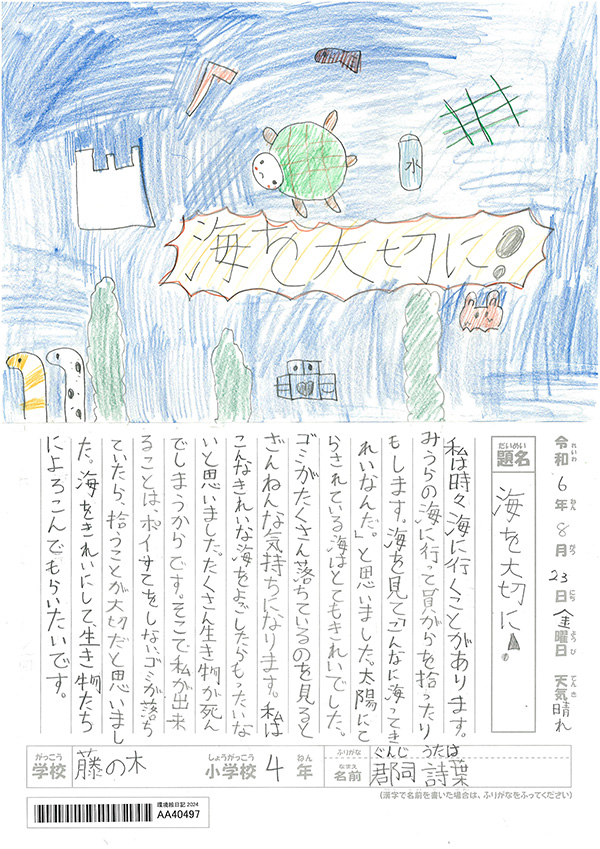 水
海を大切に!
令和6年8月23日金曜日 天気晴れ
れいわ ねん がつ にち ようび てんき
だいめい
題名
海を大切に!
私は時々海に行くことがあります。
みうらの海に行って貝がらを拾ったり
もします。海を見て「こんなに海ってき
れいなんだ。」と思いました。太陽にて
らされている海はとてもきれいでした。
ゴミがたくさん落ちているのを見ると
ざんねんな気持ちになります。私は
こんなきれいな海をよごしたらもったいな
いと思いました。たくさん生き物が死ん
でしまうからです。そこで私が出来
ることは、ポイすてをしない、ゴミが落ち
ていたら、拾うことが大切だと思いまし
た。海をきれいにして、生き物たち
によろこんでもらいたいです。
がっこう しょうがっこう ねん ふりがな ぐんじ うたは
学校 藤の木 小学校 4年 なまえ 名前 郡司 詩葉
(漢字で名前を書いた場合は、ふりがなをふってください)
環境絵日記 2024
AA40497